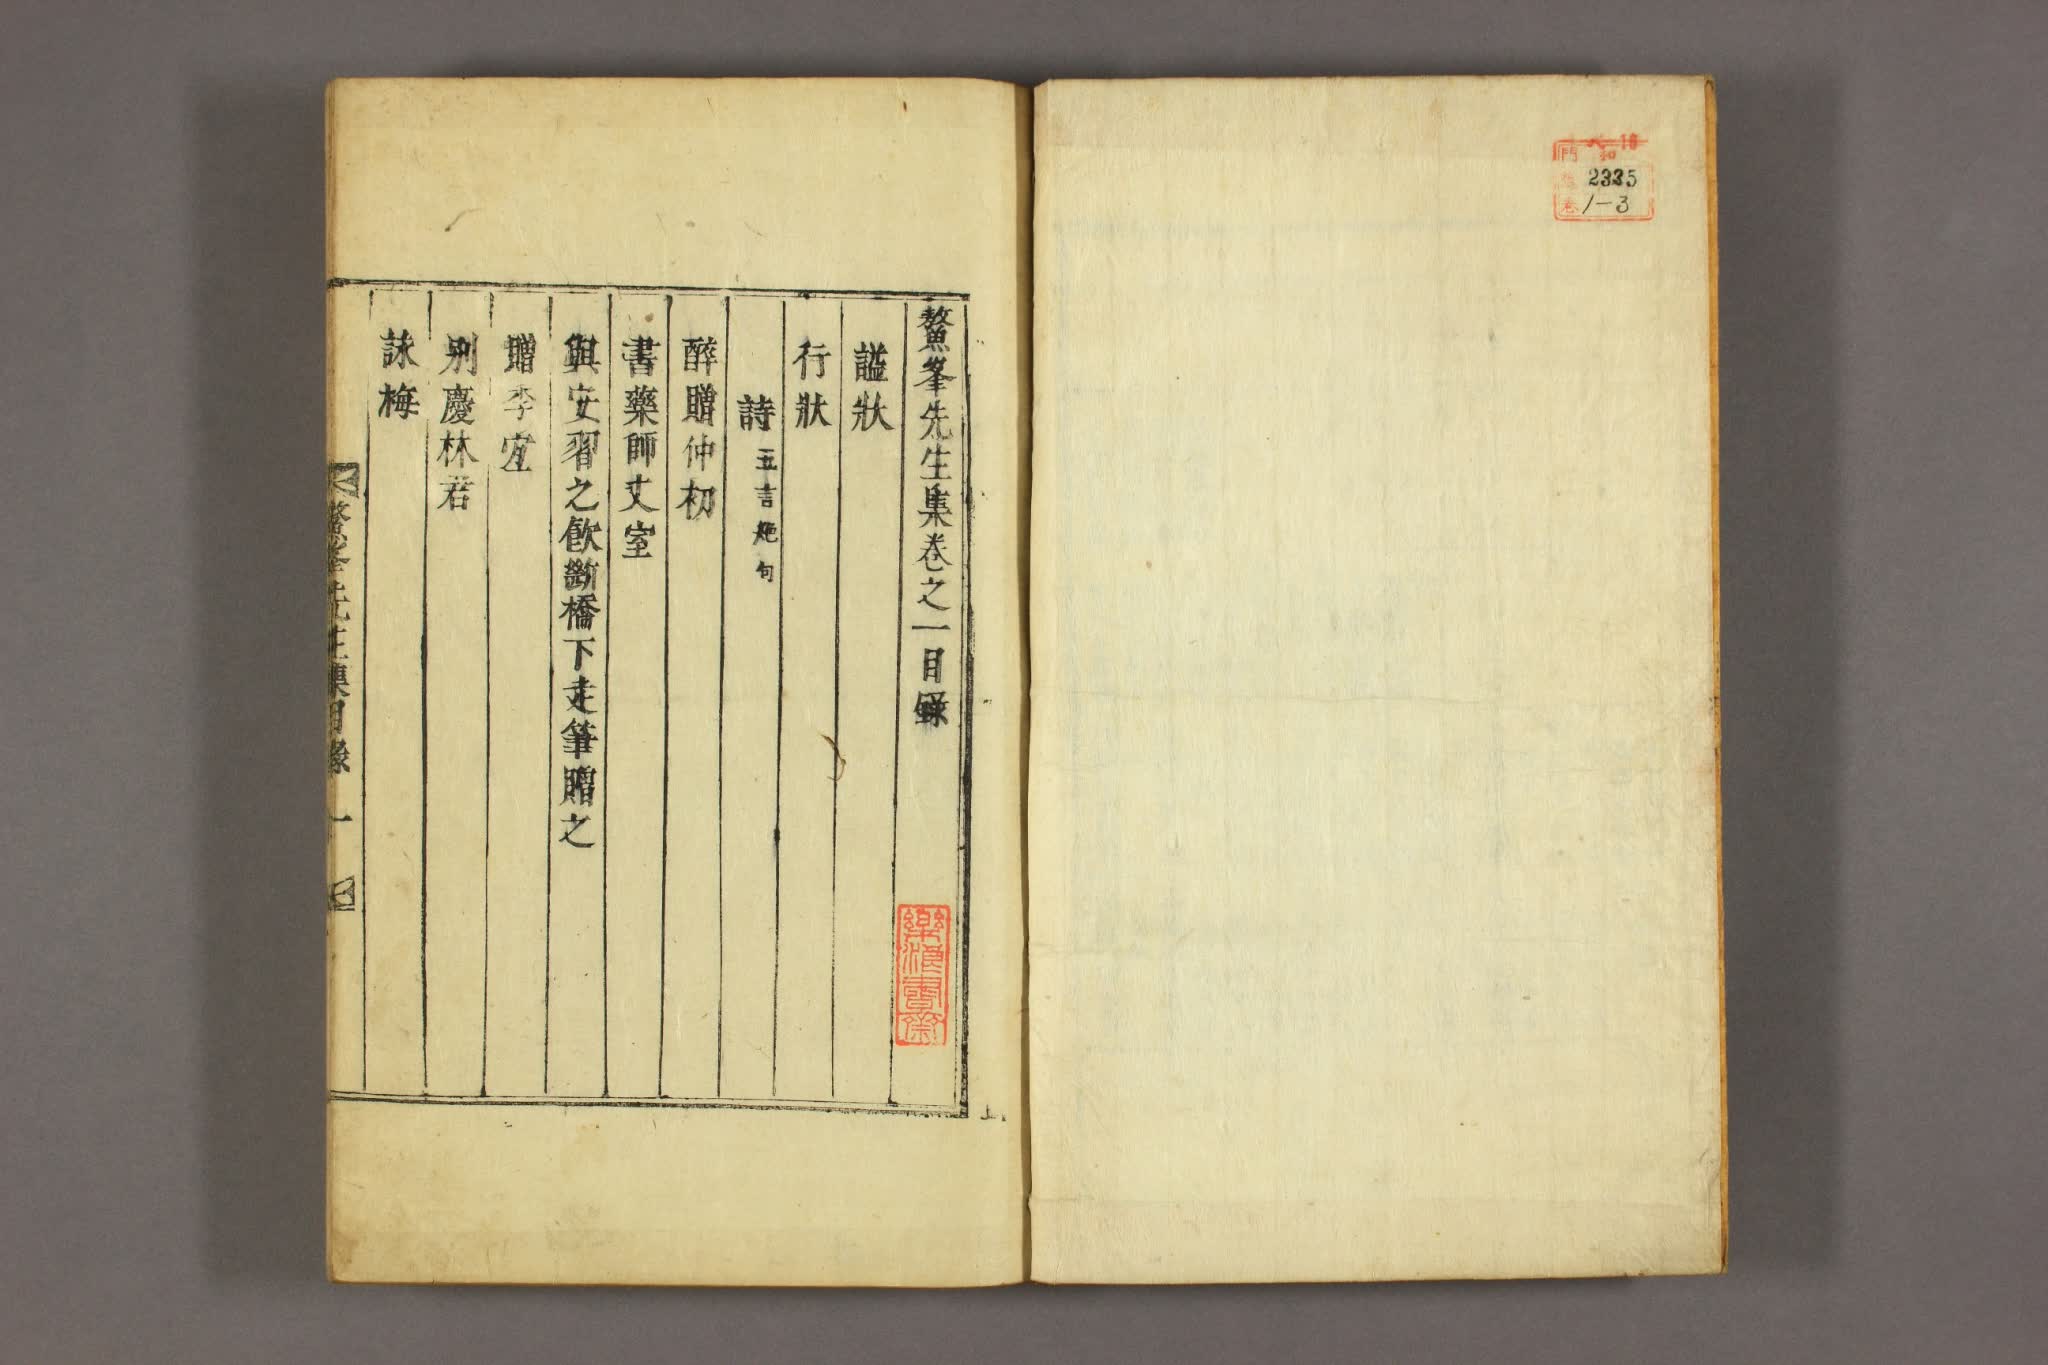 和
門
2335
卷 1-3
鰲峯先生集卷之一目錄
謚狀
行狀
詩 五言絶句
醉贈仲初
書藥師丈室
與安習之飮斷橋下走筆贈之
贈李宜
別慶林君
詠梅
鰲峯先生集目錄 一
樂浪書齋